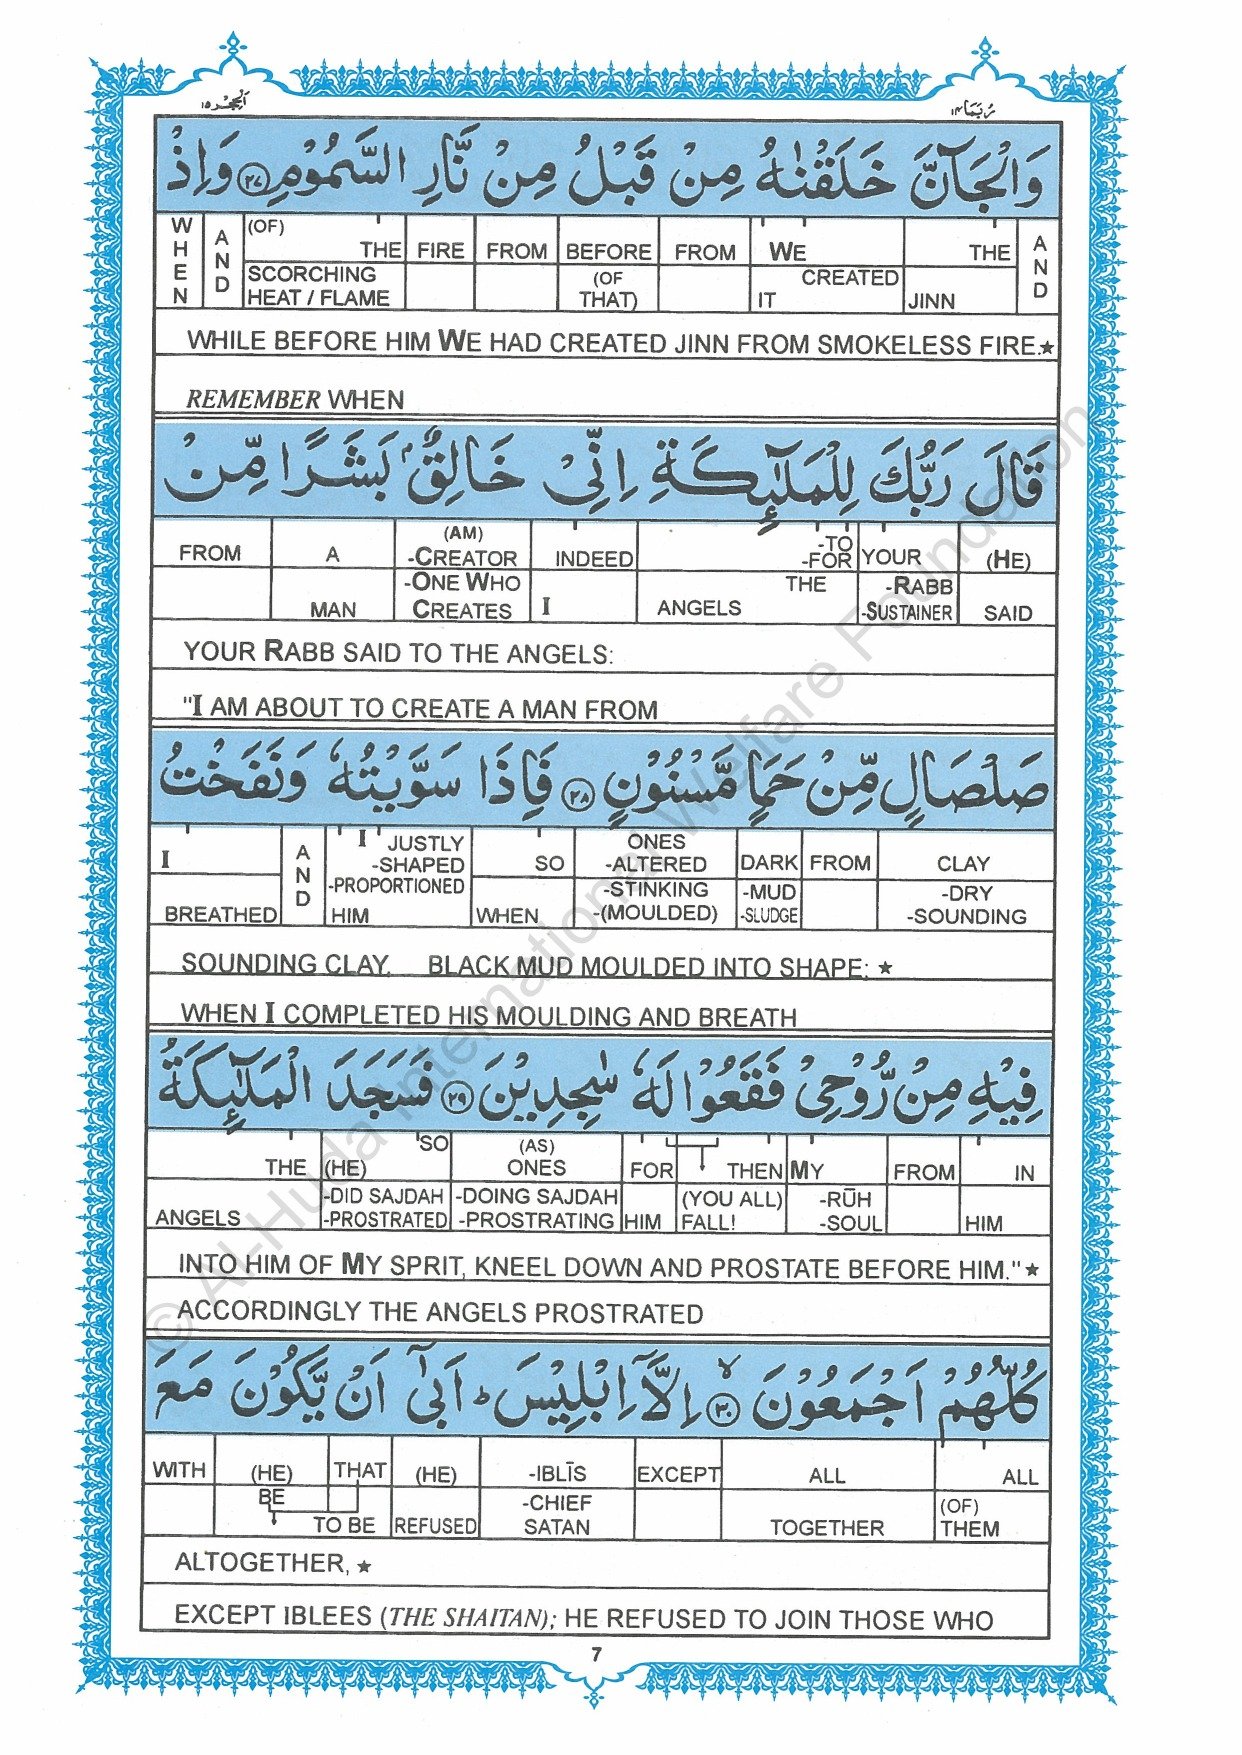 رُبَمَا ١٤
اَلْحِجْر ١٥
وَالْجَآنَّ خَلَقْنٰهُ مِنْ قَبْلُ مِنْ نَّارِ السَّمُوْمِ ۝٢٧ وَاِذْ
WHEN AND (OF) THE FIRE FROM BEFORE FROM WE THE AND
SCORCHING HEAT / FLAME (OF THAT) IT CREATED JINN
WHILE BEFORE HIM WE HAD CREATED JINN FROM SMOKELESS FIRE.★
REMEMBER WHEN
قَالَ رَبُّكَ لِلْمَلٰٓئِكَةِ اِنِّىْ خَالِقٌۢ بَشَرًا مِّنْ
FROM A (AM) -CREATOR INDEED -TO -FOR YOUR (HE)
MAN -ONE WHO CREATES I ANGELS THE -RABB -SUSTAINER SAID
YOUR RABB SAID TO THE ANGELS:
"I AM ABOUT TO CREATE A MAN FROM
صَلْصَالٍ مِّنْ حَمَاٍ مَّسْنُوْنٍ ۝٢٨ فَاِذَا سَوَّيْتُهٗ وَنَفَخْتُ
I AND I JUSTLY -SHAPED SO ONES -ALTERED DARK FROM CLAY
BREATHED -PROPORTIONED HIM WHEN -STINKING -(MOULDED) -MUD -SLUDGE -DRY -SOUNDING
SOUNDING CLAY, BLACK MUD MOULDED INTO SHAPE: ★
WHEN I COMPLETED HIS MOULDING AND BREATH
فِيْهِ مِنْ رُّوْحِىْ فَقَعُوْا لَهٗ سٰجِدِيْنَ ۝٢٩ فَسَجَدَ الْمَلٰٓئِكَةُ
THE (HE) SO (AS) ONES FOR THEN MY FROM IN
ANGELS -DID SAJDAH -PROSTRATED -DOING SAJDAH -PROSTRATING HIM (YOU ALL) FALL! -RŪH -SOUL HIM
INTO HIM OF MY SPRIT, KNEEL DOWN AND PROSTATE BEFORE HIM."★
ACCORDINGLY THE ANGELS PROSTRATED
كُلُّهُمْ اَجْمَعُوْنَ ۝٣٠ۙ اِلَّاۤ اِبْلِيْسَ ؕ اَبٰۤى اَنْ يَّكُوْنَ مَعَ
WITH (HE) THAT (HE) -IBLĪS EXCEPT ALL ALL
BE TO BE REFUSED -CHIEF SATAN TOGETHER (OF) THEM
ALTOGETHER, ★
EXCEPT IBLEES (THE SHAITAN); HE REFUSED TO JOIN THOSE WHO
7
© Al-Huda International Welfare Foundation